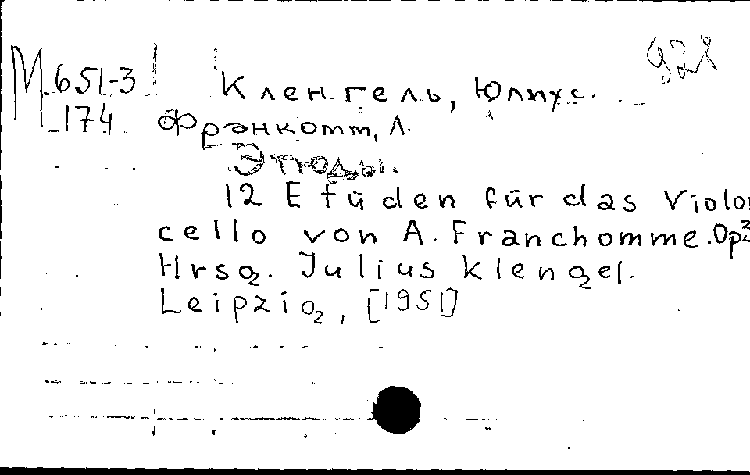 М 651-3 928
174
Кленгель, Юлиус.
Франкотт, Л.
Этюды.
12 Etüden für das Violon
cello von A. Franchomme. Op 3
Hrsg. Julius Klengel.
Leipzig, [1951]